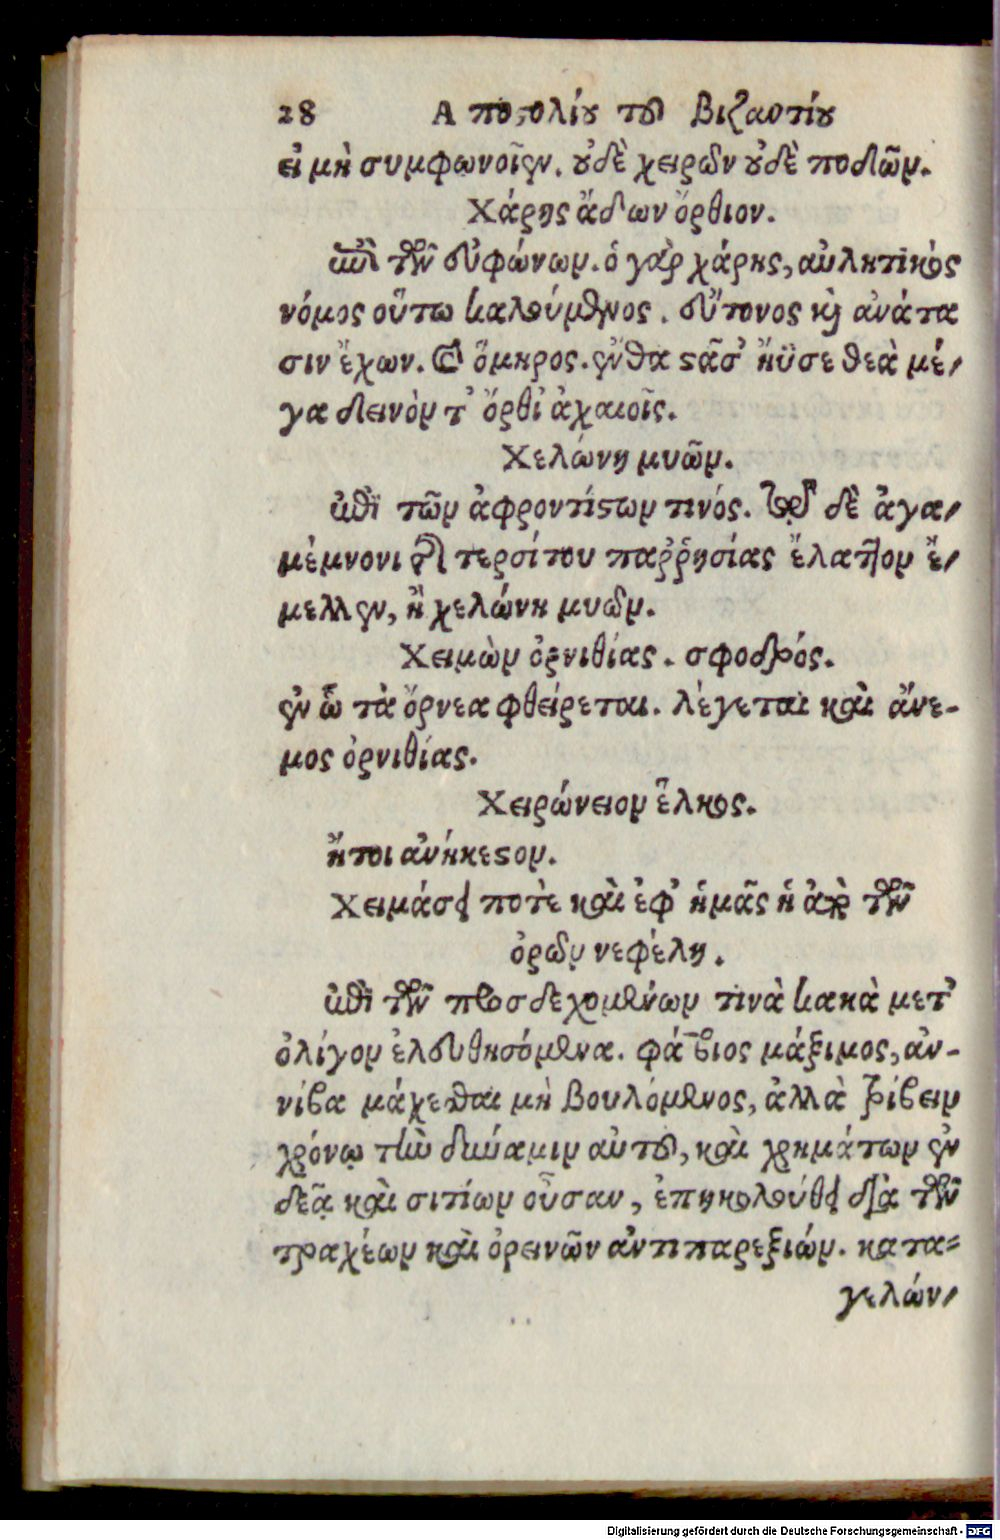 28 Ἀποστολίου τοῦ Βιζαντίου
εἰ μὴ συμφωνοῖεν. οὐδὲ χειρῶν οὐδὲ ποδῶν.
Χάρης ᾄδων ὄρθιον.
ἐπὶ τῶν εὐφώνων. ὁ γὰρ χάρης, αὐλητικὸς
νόμος οὕτω καλούμενος. εὔτονος καὶ ἀνάτα
σιν ἔχων. ὅμηρος. ἔνθα στᾶσ᾽ ἤϋσε θεὰ μέ-
γα δεινὸν τ᾽ ὄρθι᾽ ἀχαιοῖς.
Χελώνη μυῶν.
ἐπὶ τῶν ἀφροντίστων τινός. τῷ δὲ ἀγα-
μέμνονι περὶ τερσίτου παῤῥησίας ἔλαττον ἔ-
μελλεν, ἢ χελώνη μυῶν.
Χειμὼν ὀρνιθίας. σφοδρός.
ἐν ᾧ τὰ ὄρνεα φθείρεται. λέγεται καὶ ἄνε-
μος ὀρνιθίας.
Χειρώνειον ἕλκος.
ἤτοι ἀνήκεστον.
Χειμάσει ποτὲ καὶ ἐφ᾽ ἡμᾶς ἡ ἀπὸ τῶν
ὀρῶν νεφέλη.
ἐπὶ τῶν προσδεχομένων τινὰ κακὰ μετ᾽
ὀλίγον ἐλευθησόμενα. φάβιος μάξιμος, ἀν-
νίβα μάχεσθαι μὴ βουλόμενος, ἀλλὰ τρίβειν
χρόνῳ τὴν δύναμιν αὐτοῦ, καὶ χρημάτων ἐν
δεᾶ καὶ σιτίων οὖσαν, ἐπηκολούθει διὰ τῶν
τραχέων καὶ ὀρεινῶν ἀντιπαρεξιών. κατα-
γελών-
Digitalisierung gefördert durch die Deutsche Forschungsgemeinschaft - DFG